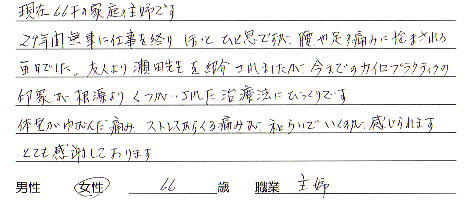 現在66才の家庭の主婦です
29年間無事に仕事を終りほっとひと息ですが、腰や足の痛みに悩まされる
毎日でした。友人より瀬田先生を紹介されましたが今までのカイロプラクティックの
印象が根源よりくつがいされた治療法にびっくりです
体全体がゆがんだ痛み、ストレスからくる痛みが和らいでいくのが感じられます
とても感謝しております
男性 女性 66 歳 職業 主婦